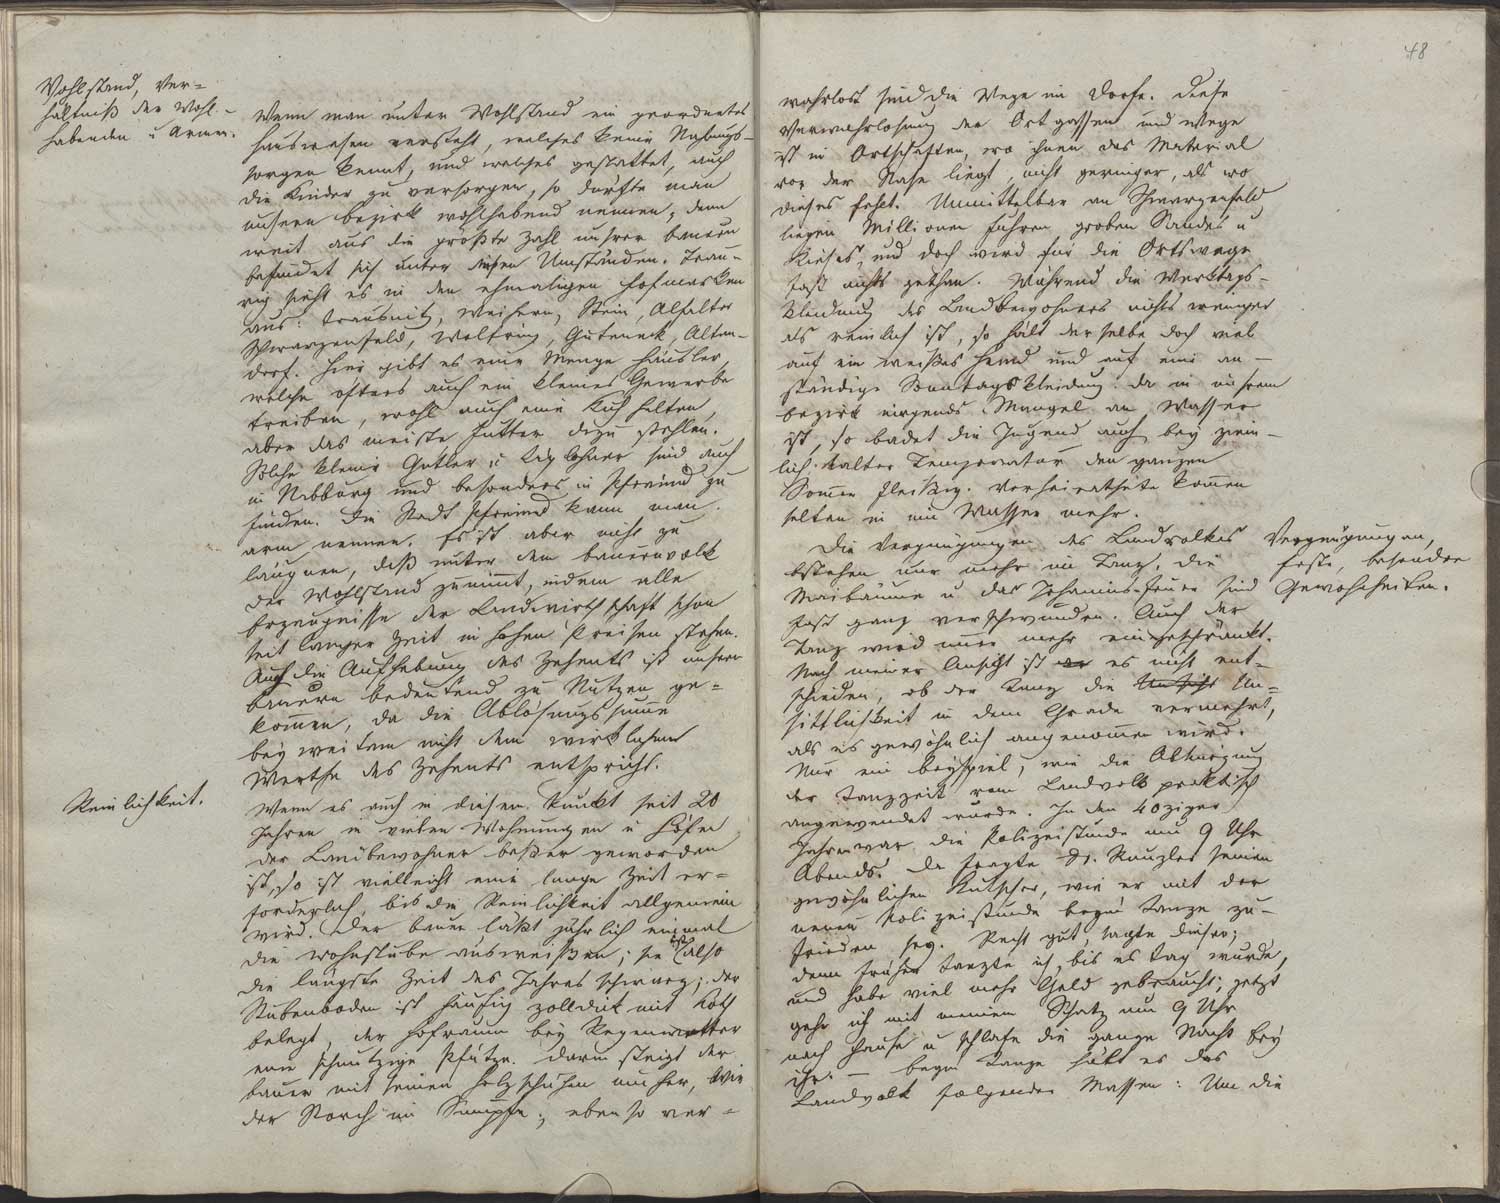 Wohlstand, Ver=
hältniß der Wohl-
habenden u Armen.
Wenn man unter Wohlstand ein geordnetes
Hauswesen versteht, welches keine Nahrungs-
sorgen kennt, und welches gestattet, auch
die Kinder zu versorgen, so dürfte man
unsern Bezirk wohlhabend nennen, denn
weit aus die größte Zahl unsrer Bauern
befindet sich unter diesen Umständen. Trau-
rig sieht es in den ehmaligen Hofmarken
aus: Trausnitz, Weihern, Stein, Altfalter
Schwarzenfeld, Wolfring, Guteneck, Alten-
dorf. Hier gibt es eine Menge Häusler,
welche öfters auch ein kleines Gewerbe
treiben, wohl auch eine Kuh halten,
aber das meiste Futter dazu stehlen.
Solche kleine Gütler u Taglöhner sind auch
in Nabburg und besonders in Pfreimd zu
finden. Die Stadt Pfreimd kann man
arm nennen. Es ist aber nicht zu
läugnen, daß unter dem Bauernvolk
der Wohlstand zunimmt, indem alle
Erzeugnisse der Landwirthschaft schon
seit langer Zeit in hohen Preisen stehen.
Auch die Aufhebung des Zehents ist unsern
Bauern bedeutend zu Nutzen ge=
kom̅en, da die Ablösungssum̅e
bey weitem nicht dem wirklichen
Werthe des Zehents entspricht.
Reinlichkeit.
Wenn es auch in diesem Punkt seit 20
Jahren in vielen Wohnungen u Höfen
der Landbewohner beßer geworden
ist, so ist vielleicht eine lange Zeit er=
forderlich, bis die Reinlichkeit allgemein
wird. Der Bauer läßt jährlich einmal
die Wohnstube ausweißen; sie ist also
die längste Zeit des Jahres schwarz; der
Stubenboden ist häufig zolldick mit Koth
belegt, der Hofraum bey Regenwetter
eine schmutzige Pfütze. Darin steigt der
Bauer mit seinen Holzschuhen umher, wie
der Storch im Sumpfe; ebenso ver=
48
wahrlost sind die Wege im Dorfe. Diese
Verwahrlosung der Ortgassen und Wege
ist in Ortschaften, wo ihnen das Material
vor der Nase liegt, nicht geringer, als wo
dieses fehlt. Unmittelbar an Schwarzenfeld
liegen Millionen Fuhren groben Sandes u
Kieses, und doch wird für die Ortswege
fast nichts gethan. Während die Werktags-
kleidung des Landbewohners nichts weniger
als reinlich ist, so hält derselbe doch viel
auf ein weißes Hemd und auf eine an-
ständige Sonntagskleidung. Da in unserm
Bezirk nirgends Mangel an Wasser
ist, so badet die Jugend auch bey ziem-
lich kalter Temperatur den ganzen
Som̅er fleißig. Verheirathete kom̅en
selten in ein Wasser mehr.
Die Vergnügungen des Landvolkes
bestehen nur mehr im Tanz. Die
Maibäume u das Johannis-Feuer sind
fast ganz verschwunden. Auch der
Tanz wird im̅er mehr eingeschränkt.
Nach meiner Ansicht ist es nicht ent-
schieden, ob der Tanz die Un=
sittlichkeit in dem Grade vermehrt,
als es gewöhnlich angenom̅en wird.
Nur ein Beyspiel, wie die Abkürzung
der Tanzzeit vom Landvolk praktisch
angewendet wurde. In den 40ziger
Jahren war die Polizeistunde um 9 Uhr
Abends. Da fragte Dr. Kanzler seinen
gewöhnlichen Kutscher, wie er mit der
neuen Polizeistunde beym Tanze zu-
frieden sey. Recht gut, sagte dieser;
denn früher tanzte ich, bis es Tag wurde,
und habe viel mehr Geld gebraucht; jetzt
gehe ich mit meinem Schatz um 9 Uhr
nach Hause u schlafe die ganze Nacht bey
ihr. — Beym Tanze hält es das
Landvolk folgender Massen: Um die
Vergnügungen,
Feste, besondere
Gewohnheiten.